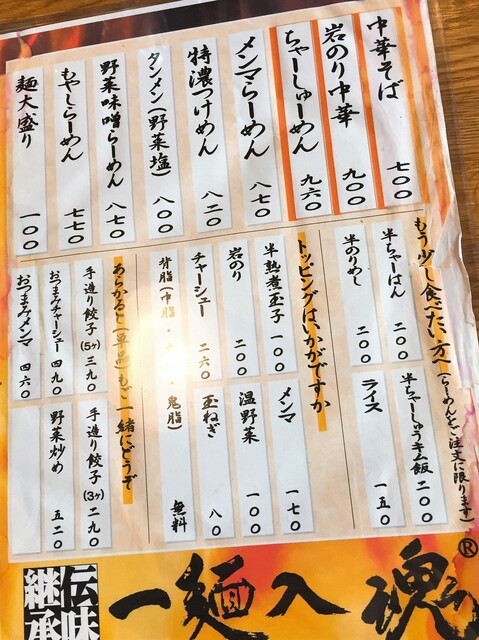 中華そば 七〇〇
岩のり中華 九〇〇
ちゃーしゅーめん 九六〇
メンマらーめん 八七〇
特濃つけめん 八二〇
タンメン(野菜塩) 八〇〇
野菜味噌らーめん 八七〇
もやしらーめん 七七〇
麺大盛り 一〇〇
もう少し食べたい方へ(らーめんをご注文に限ります)
半ちゃーはん 二〇〇
半ちゃーしゅうキム飯 二〇〇
半のりめし 二〇〇
ライス 一五〇
トッピングはいかがですか
半熟煮玉子 一〇〇
メンマ 一七〇
岩のり 二〇〇
温野菜 一〇〇
チャーシュー 二六〇
玉ねぎ 八〇
背脂(中脂・ ・鬼脂) 無料
あらかると(単品)もご一緒にどうぞ
手造り餃子(5ヶ) 三九〇
手造り餃子(3ヶ) 二九〇
おつまみチャーシュー 四九〇
野菜炒め 五二〇
おつまみメンマ 四六〇
伝味
継承
一麺入魂®